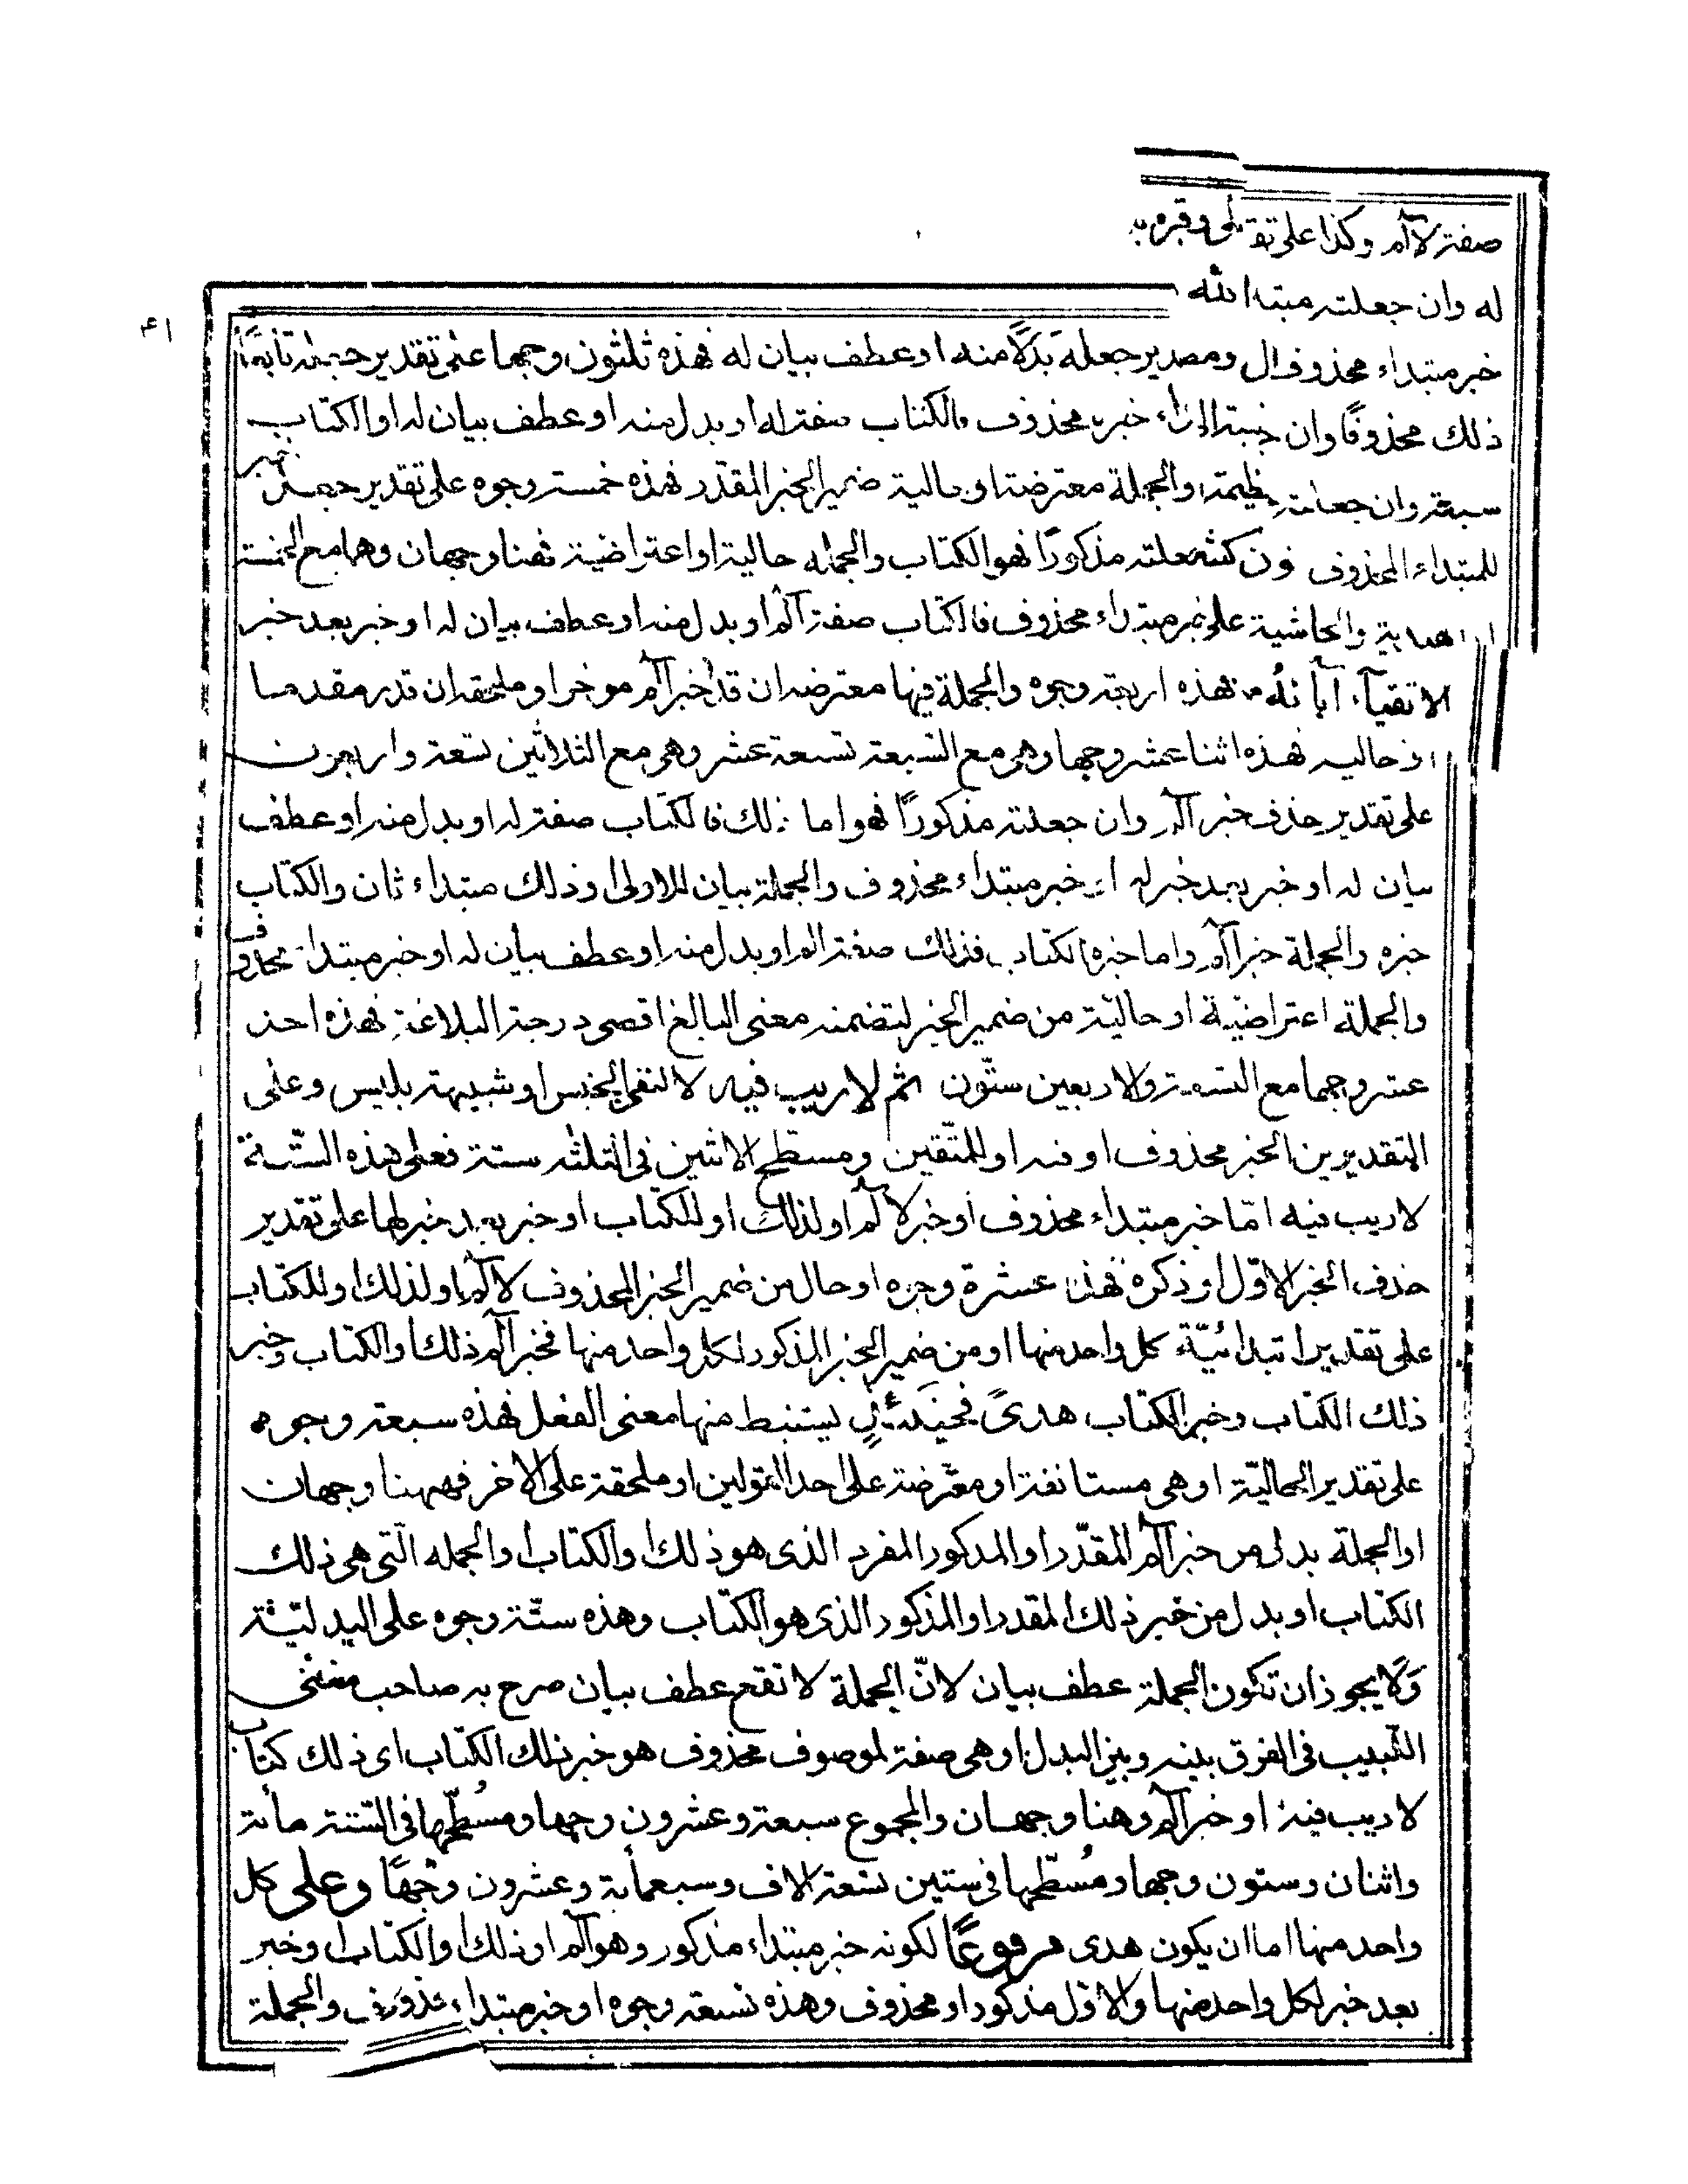 صفة لآلم وكذا على تقد
له وان جعلته مبتدا
۴۱
خبر مبتداء محذوف او جعله بدلًا منه او عطف بيان له فهذه ثلثون وجها على تقدير
ذلك محذوفًا وان خبره محذوف فالكتاب صفة له او بدل منه او عطف بيان له او الكتاب خبر
وان جعلت والجملة معترضة او حالية ضمير الخبر المقدر فهذه خمسة وجوه على تقدير
للمبتداء المحذوف مذكورًا فهو الكتاب والجمله حالية او اعتراضية فهنا وجهان وهما مع الخمسة
على مبتداء محذوف فالكتاب صفة آلم او بدل منه او عطف بيان له او خبر بعد خبر
فهذه اربعة وجوه والجملة فيها معترضة ان قدر خبر آلم موخرا او ملحقة ان قدر مقدما
او حاليه فهذه اثنا عشر وجها وهي مع السبعة تسعة عشر وهي مع الثلاثين تسعة واربعون
على تقدير حذف خبر آلم وان جعلته مذكورًا فهو اما ذلك فالكتاب صفة له او بدل منه او عطف
بيان له او خبر بعد خبر له او خبر مبتداء محذوف والجملة بيان للاولى او ذلك مبتداء ثان والكتاب
خبره والجملة خبر آلم واما خبره الكتاب فذلك صفة الم او بدل منه او عطف بيان له او خبر مبتداء محذوف
والجملة اعتراضيّة او حاليّة من ضمير الخبر لتضمنه معنى البالغ اقصى درجة البلاغة فهذه احد
عشر وجها مع التسعة والاربعين ستّون ثم لاريب فيه لا لنفى الجنس او شبيهة بليس وعلى
التقديرين الخبر محذوف او فيه او للمتّقين ومسطح الاثنين فى الثلثه ستة فعلى هذه السّتة
لاريب فيه امّا خبر مبتداء محذوف او خبر لآلم او لذلك او للكتاب او خبر بعد خبر لها على تقدير
حذف الخبر الاوّل او ذكره فهذه عشرة وجوه او حال من ضمير الخبر المحذوف لآلم او لذلك او للكتاب
على تقدير ابتدائيّة كل واحد منها او من ضمير الخبر المذكور لكل واحد منها فخبر آلم ذلك او الكتاب وخبر
ذلك الكتاب وخبر الكتاب هدىً فحينئذٍ يستنبط منها معنى الفعل فهذه سبعة وجوه
على تقدير الحاليّة او هى مستانفة او معترضة على احد القولين او ملحقة على الاخر فههنا وجهان
او الجملة بدل من خبر آلم المقدّر او المذكور المفرد الذى هو ذلك او الكتاب او الجمله الّتى هى ذلك
الكتاب او بدل من خبر ذلك المقدر او المذكور الذى هو الكتاب وهذه ستّة وجوه على البدليّة
ولا يجوز ان تكون الجملة عطف بيان لانّ الجملة لا تقع عطف بيان صرح به صاحب مغنى
اللّبيب فى الفرق بينه وبين البدل او هى صفة لموصوف محذوف هو خبر ذلك الكتاب اى ذلك كتاب
لاريب فيه او خبر آلم وهنا وجهان والمجموع سبعة وعشرون وجها ومُسطّحها فى السّتة مأة
واثنان وستون وجها ومُسطّحها فى ستين تسعة الاف وسبعمأة وعشرون وجهًا وعلى كل
واحد منها اما ان يكون هدى مرفوعًا لكونه خبر مبتداء مذكور وهو آلم او ذلك او الكتاب او خبر
بعد خبر لكل واحد منها والاول مذكور او محذوف وهذه تسعة وجوه او خبر مبتداء محذوف والجملة